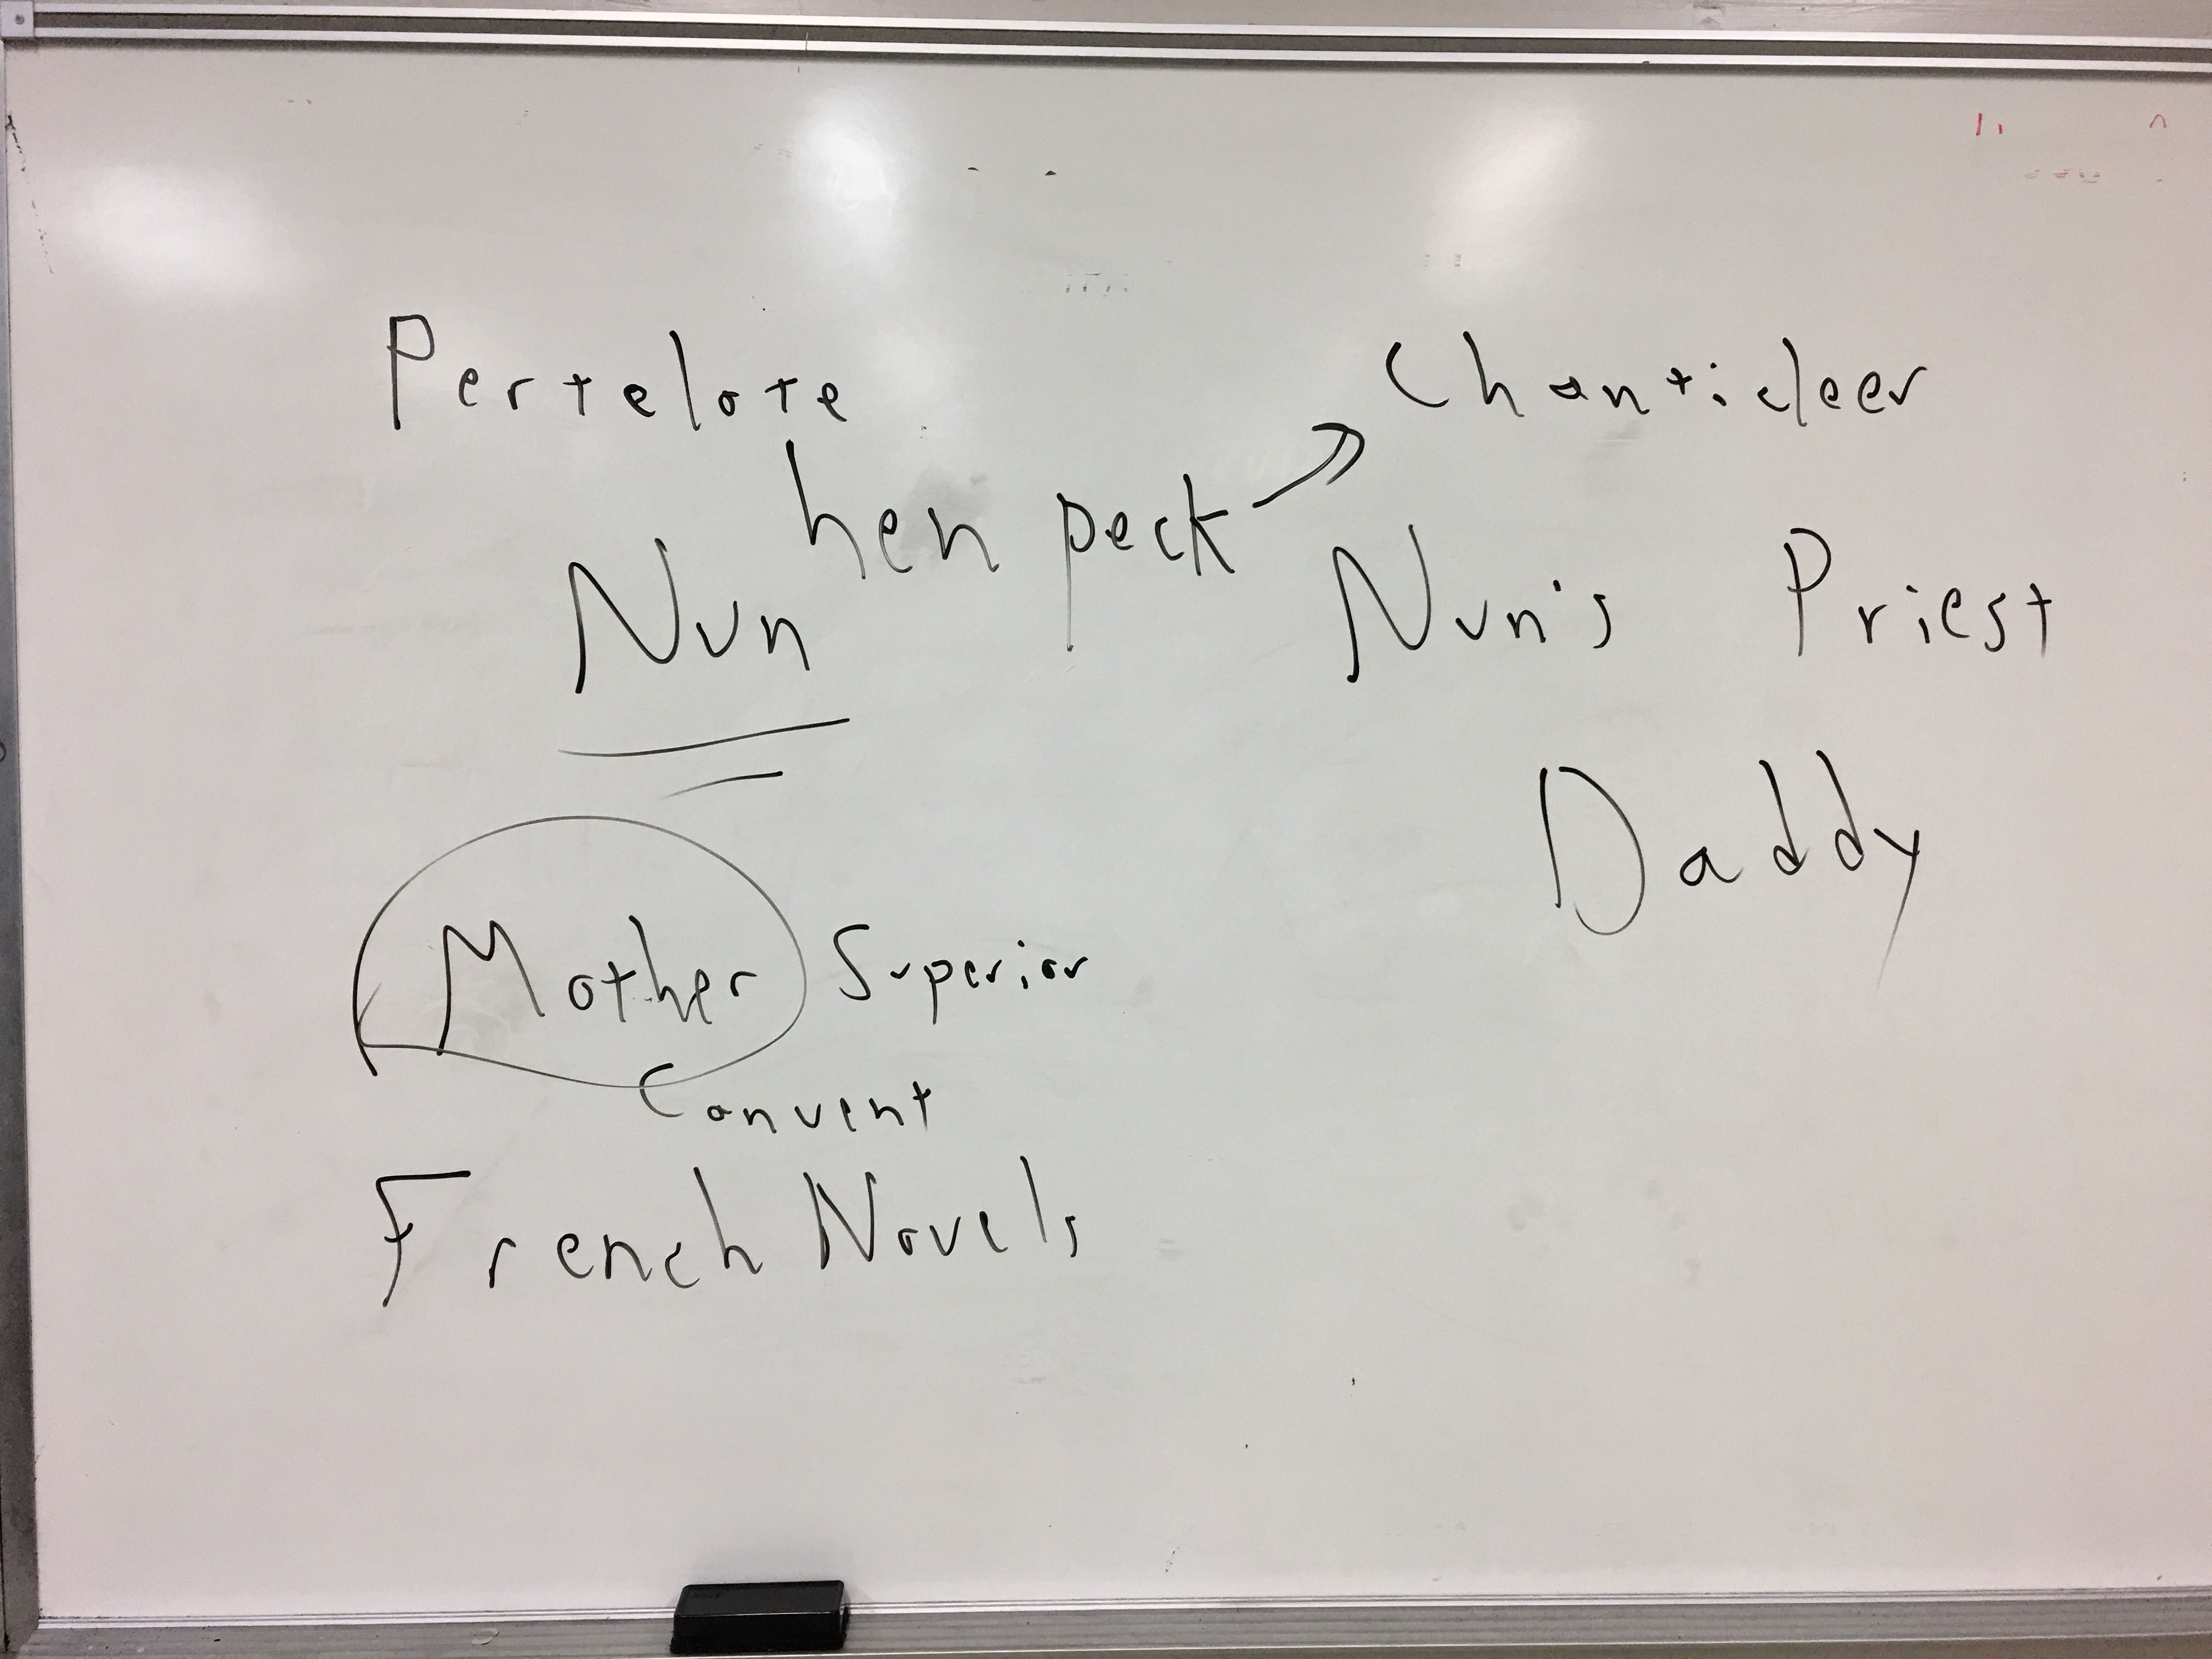 Pertelote Chanticleer
hen peck
Nun Nun's Priest
Daddy
Mother Superior
Convent
French Novels